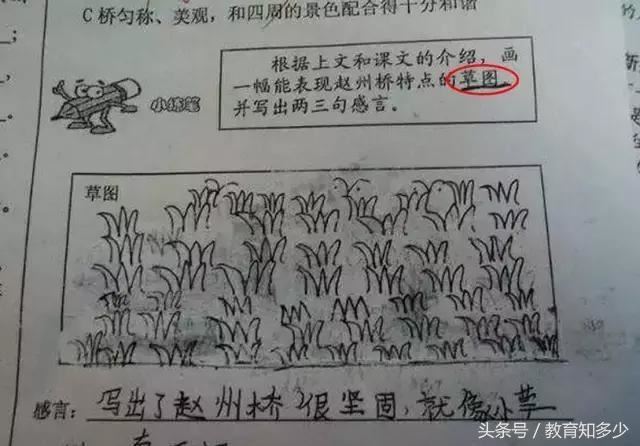 C桥匀称、美观，和四周的景色配合得十分和谐
根据上文和课文的介绍，画
一幅能表现赵州桥特点的草图，
并写出两三句感言。
小练笔
草图
感言：写出了赵州桥很坚固，就像小草一
头条号／教育知多少